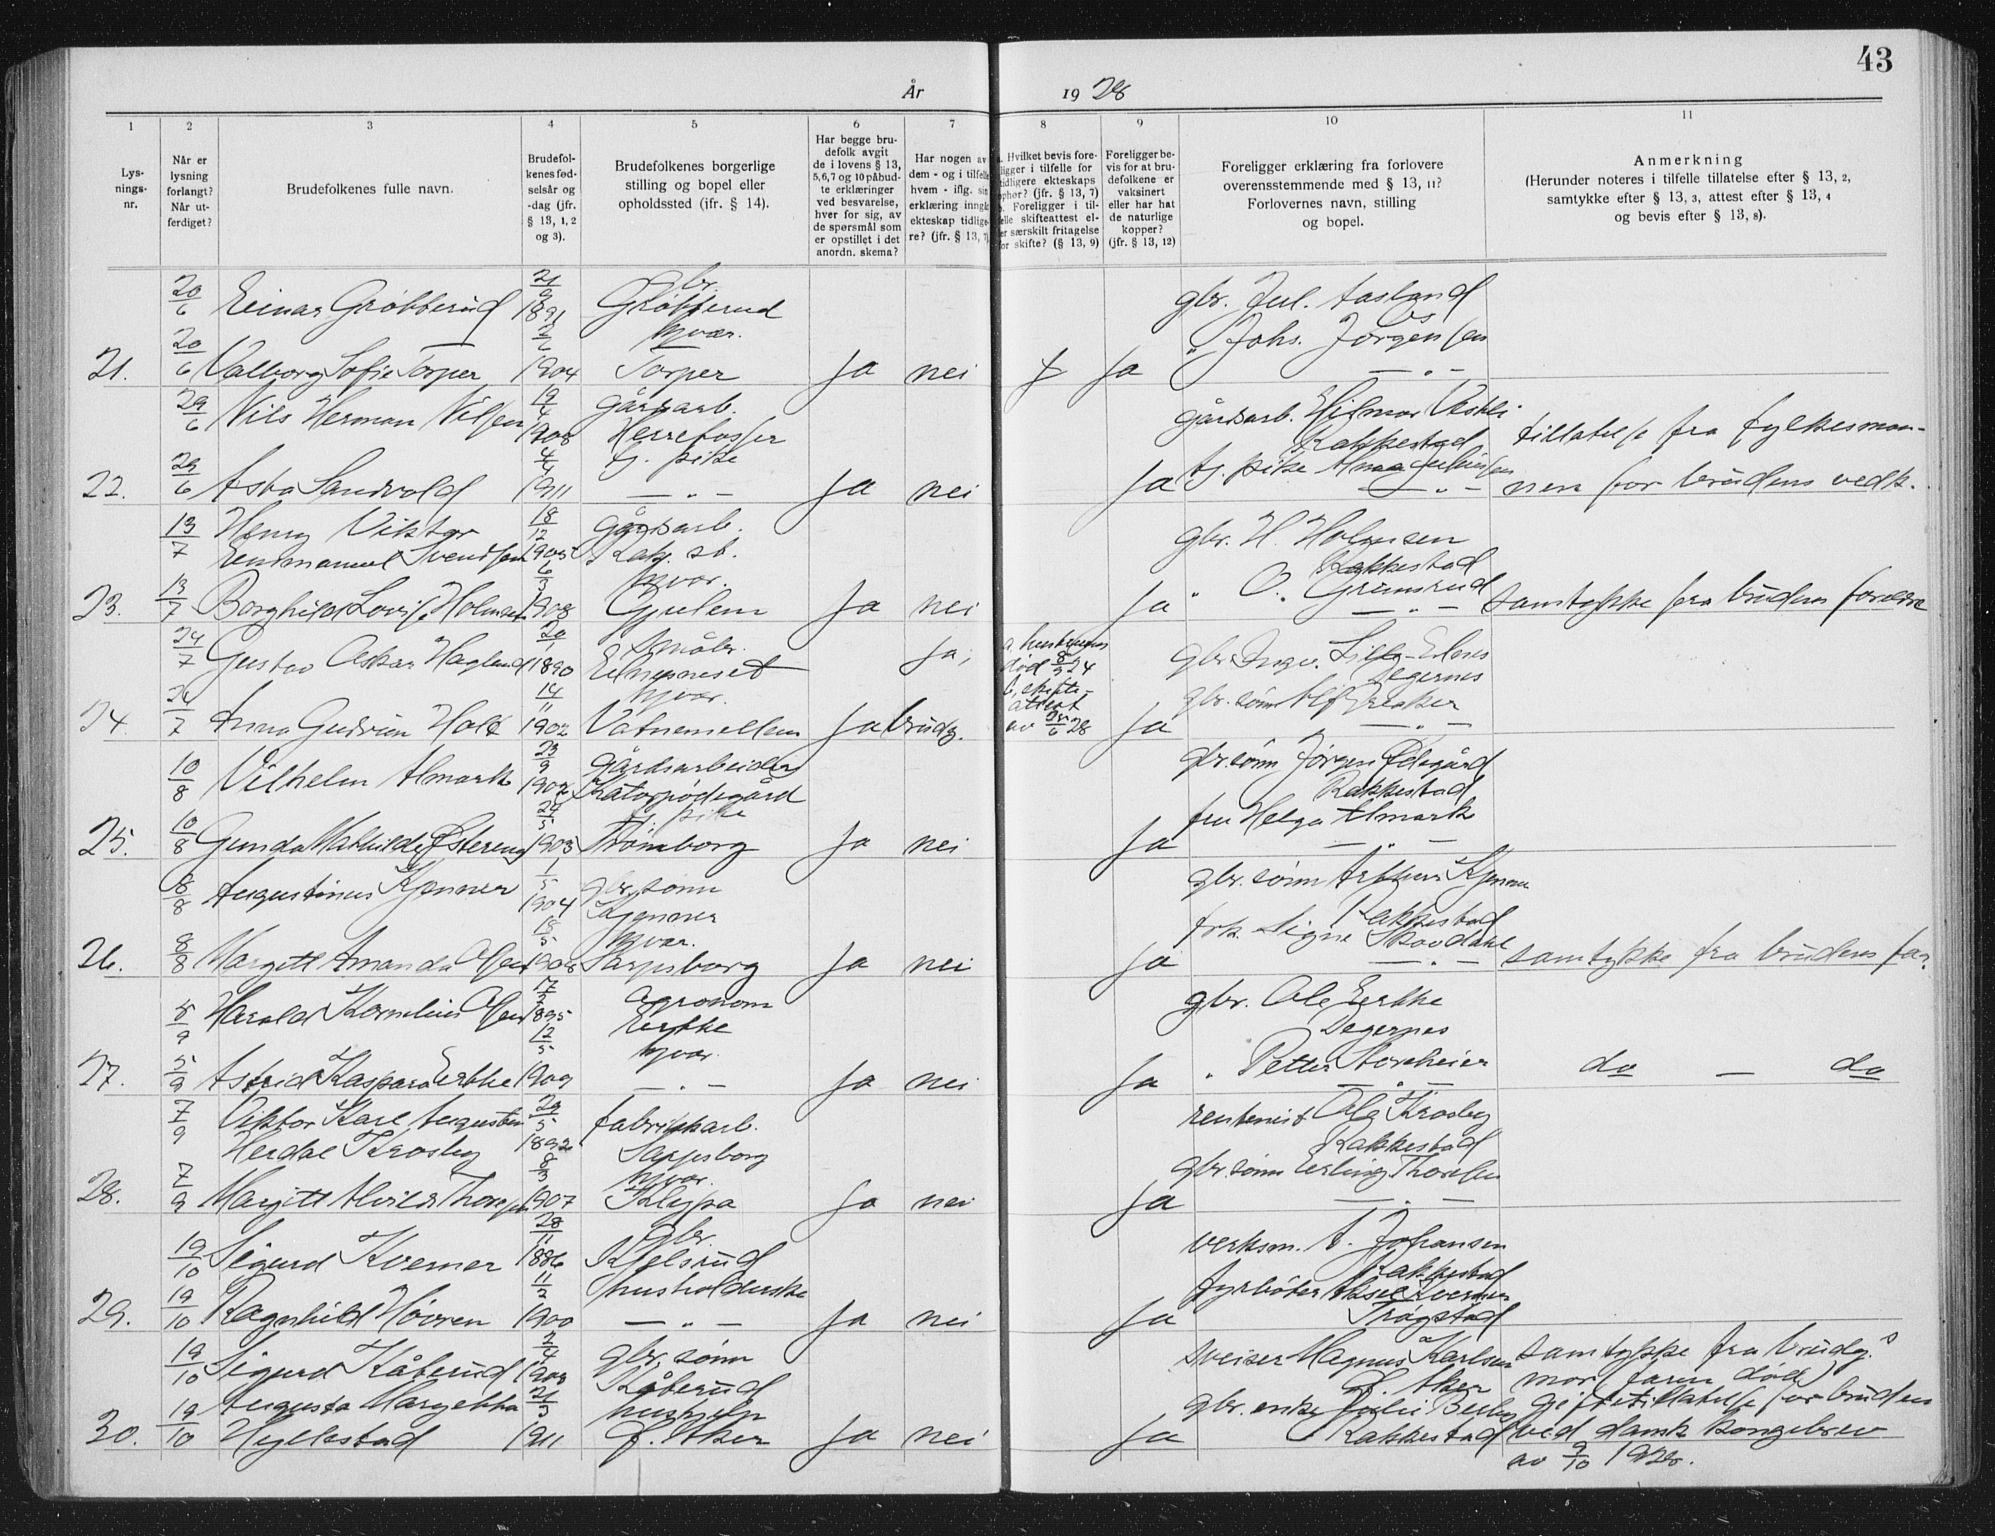 43
År 1928
1 2 3 4 5 6 7 8 9 10 11
Lys-
nings-
nr.
Når er
lysning
forlangt?
Når ut-
ferdiget?
Brudefolkenes fulle navn.
Brudefol-
kenes fød-
selsår og
-dag (jfr.
§ 13, 1, 2
og 3).
Brudefolkenes borgerlige
stilling og bopel eller
opholdssted (ifr. § 14).
Har begge bru-
defolk avgit
de i lovens § 13,
5,6,7 og 10 påbud-
te erklæringer
ved besvarelse,
hver for sig, av
de spørsmål som
er opstillet i det
anordn. skema?
Har nogen av
dem - og i tilfelle
hvem - iflg. sin
erklæring inngå
ekteskap tidlige-
re? (jfr. § 13, 7)
a. Hvilket bevis fore-
ligger i tilfelle for
tidligere ekteskaps
ophør? (jfr. § 13, 7)
b. Foreligger i til-
felle skifteattest el-
er særskilt fritagelse
for skifte? (§ 13, 9)
Foreligger be-
vis for at bru-
defolkene er
vaksinert
eller har hat
de naturlige
kopper?
(jfr. § 13, 12)
Foreligger erklæring fra forlovere
overensstemmende med § 13, 11?
Forlovernes navn, stilling
og bopel.
Anmerkning
(Herunder noteres i tilfelle tillatelse efter § 13, 2,
samtykke efter § 13, 3, attest efter § 13, 4
og bevis efter § 13, 8).
20/6 Einar Grøtterud 1891 gbr. Grøtterud gbr. Jul. Aasland
21. 20/6 Valborg Sofie Torper 2/6 1904 hjvær. Torper Ja nei Ja " Johs. Jørgensen
29/6 Nils Herman Nilsen 19/4 1908 gårdsarb. Herrefosser gårdsarb. Hilmar Østli Rakkestad tillatelse fra fylkesman-
22. 29/6 Asta Sandvold 4/4 1911 tj. pike — " — Ja nei Ja tj. pike — " — nen for brudens vedk.
13/7 Henry Viktor 18/12 gårdsarb. gbr. H. Holmsen
Emmanuel Svendsen 1905 Rak. st. Rakkestad
23. 13/7 Borghild Lovise Holmsen 6/3 1908 hjvær. Gjulem Ja nei Ja " O. Grimsrud — " — samtykke fra brudens foreldre
24/7 Gustav Oskar Haglund 20/1 1890 småbr. Ja, a. hustruens død 8/3 24 gbr. Degernes
24. 24/7 Anna Gudrun Holt 14/11 1902 hjvær. Vatnemellem Ja brudg. b. skifte-
attest
av 6 28 Ja gbr. sønn — " —
10/8 Vilhelm Almark 23/9 1902 gårdsarbeider gbr. sønn Jørgen Ødegård Rakkestad
25. 10/8 Gunda Mathilde Østereng 29/5 1903 tj. pike Trømborg Ja nei Ja fru Helga Almark — " —
8/8 Augustinus Kjenner 1/5 1904 gbr. sønn Kjenner gbr. sønn Arthur Kjenner Rakkestad
26. 8/8 Margitt Amanda Olsen 18/5 1908 hjvær. Sarpsborg Ja nei Ja frk. Signe Skovdahl — " — samtykke fra brudens far.
5/9 Harald Kornelius Olsen 17/2 1895 agronom Ertke gbr. Ole Ertke Degernes
27. 5/9 Astrid Kaspara Ertke 12/5 1909 hjvær. — " — Ja nei Ja " Petter — " — do — do
7/9 Viktor Karl Augustin 29/5 fabrikkarb. rentenist Ole Krosby
Herdal Krosby 1892 Sarpsborg Rakkestad
28. 7/9 Margitt Alvilde Thoresen 8/3 1907 hjvær. Kleppa Ja nei Ja gbr. sønn Erling Thoresen — " —
19/10 Sigurd Kverner 28/11 1886 gbr. Kjelsrud verksm. A. Johansen Rakkestad
29. 19/10 Ragnhild Høvren 11/2 1900 husholderske — " — Ja nei Ja fyrbøter Aksel Kverner Trøgstad
19/10 Sigurd Kåterud 2/4 1908 gbr. sønn Kåterud sveiser Magnus Karlsen Ø. Aker samtykke fra brudg.s
mor, faren død
Augusta Margretha 21/3 hushjelp gbr. enke Julie giftetillatelse for bruden
30. 19/10 Hyllestad 1911 Ø. Aker Ja nei Ja Rakkestad ved dansk kongebrev
av 9/10 1928.